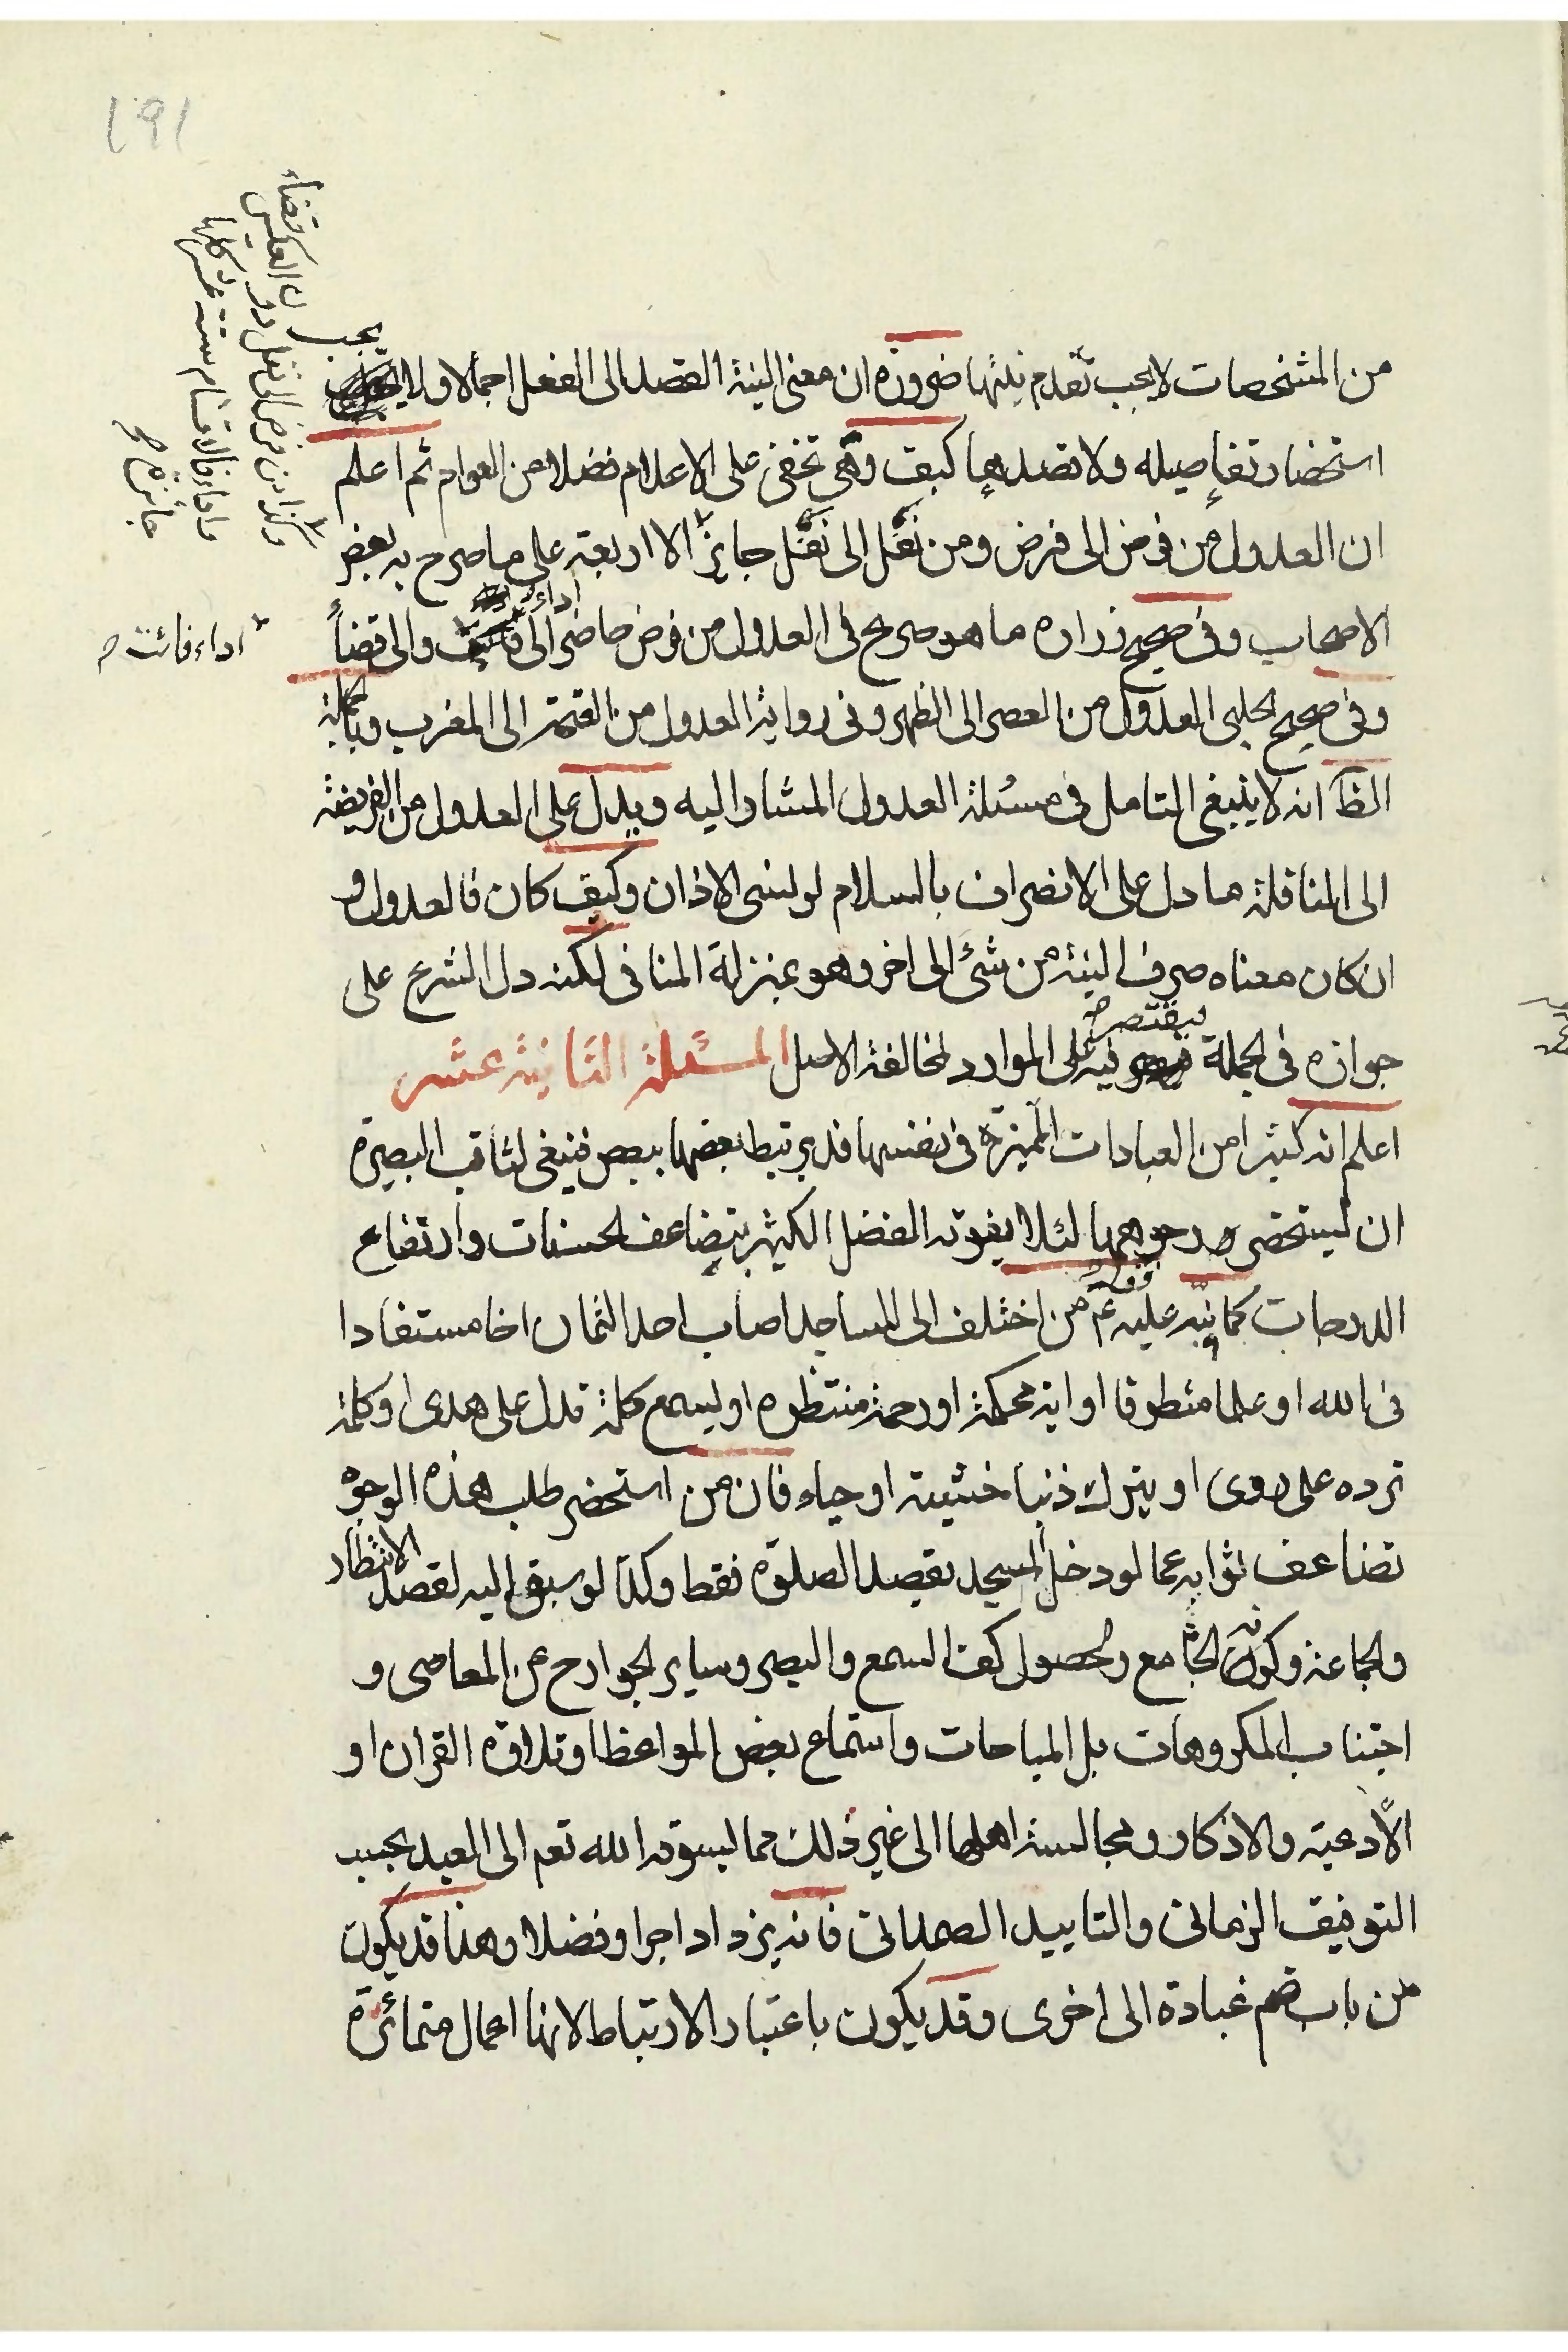 من المشخصات لا يجب تقدم نيتها ضرورة ان معنى النية القصد الى الفعل اجمالا ولا يجب
استحضار تفاصيله ولا قصدها كيف وهى تخفى على الاعلام فضلا عن العوام ثم اعلم
ان العدول من فرض الى فرض ومن نفل الى نفل جايز الا اربعة على ما صرح به بعض
الاصحاب وفى صحيح زرارة ما هو صريح فى العدول من فرض حاضر الى اداء والى قضأ
وفى صحيح الحلبى العدول من العصر الى الظهر وفى رواية العدول من العتمة الى المغرب وبالجملة
الظ انه لا ينبغى التامل فى مسئلة العدول المشار اليه ويدل على العدول من الفريضة
الى النافلة ما دل على الانصراف بالسلام لو نسى الاذان وكيف كان فالعدول و
ان كان معناه صرف النية من شئ الى اخر وهو بمنزلة المنافى لكنه دل الشرع على
جوازه فى الجملة فيقتصر فيه على الموارد لمخالفة الاصل المسئلة الثانية عشر
اعلم انه كثيرا من العبادات المميزة فى نفسها قد يرتبط بعضها ببعض فينبغى لثاقب البصيرة
ان يستحضر وجوهها لئلا يفوته الفضل الكثير بتضاعف الحسنات وارتفاع
الدرجات كما نبه عليه قوله ع من اختلف الى المساجد اصاب احد الثمان اخا مستفادا
فى الله او علما مستطرفا او اية محكمة او رحمة منتظره او يسمع كلمة تدل على هدى او كلمة
ترده على ردى او يترك ذنبا خشية او حياء فان من استحضر طلب هذه الوجوه
تضاعف ثوابه عما لو دخل المسجد بقصد الصلوة فقط وكذا لو سبق اليه لقصد الانتظار
والجماعة وكونه الجامع ولحصول كف السمع والبصر وساير الجوارح عن المعاصى و
اجتناب المكروهات بل المباحات واستماع بعض المواعظ او تلاوة القران او
الأدعية والاذكار ومجالسة اهلها الى غير ذلك مما يسوقه الله تعم الى العبد بحسب
التوفيق الزمانى والتاييد الصمدانى فانه يزداد اجرا وفضلا وهذا قد يكون
من باب ضم عبادة الى اخرى وقد يكون باعتبار الارتباط لانها اعمال متمائزة
اداء فائت ص
وكذا من فرض الى نفل دون العكس
فالاقسام ستة عشر كلها
جائزة